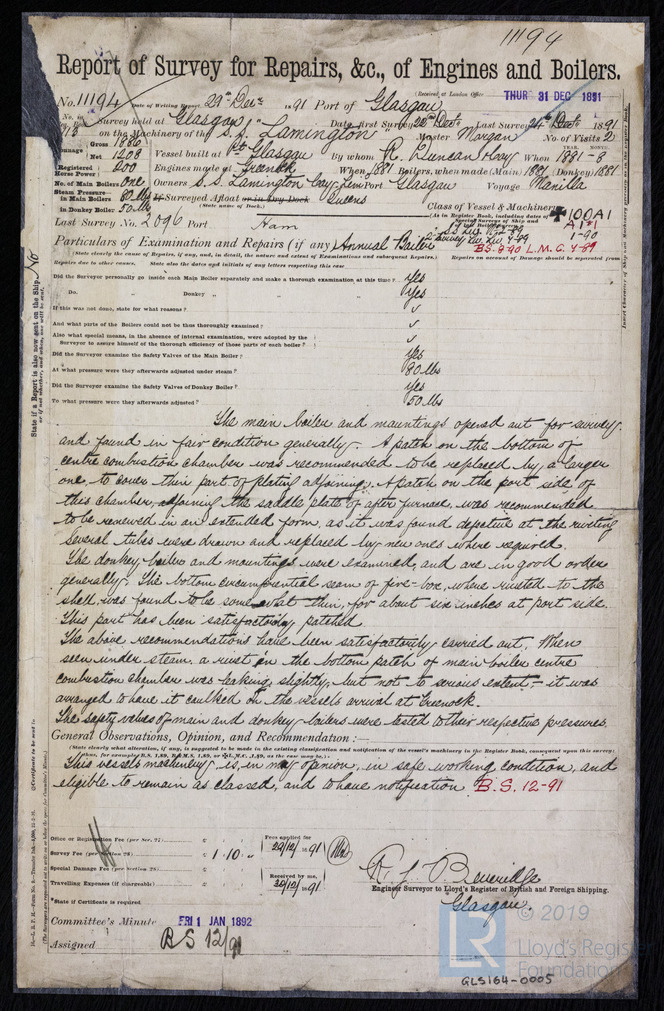 11194
Report of Survey for Repairs, &c., of Engines and Boilers.
(Received at London Office THUR 31 DEC 1891
No. 11194 Date of Writing Report 29th Decr 1891 Port of Glasgow
No. in Survey held at Glasgow Date, first Survey 28th Decr Last Survey 24th Decr 1891
on the Machinery of the S.S. "Lamington" Master Morgan No. of Visits 2
Tonnage Gross 1886
Net 1208 Vessel built at Pt Glasgow By whom R. Duncan & Coy When 1881-8
Registered Horse Power 200 Engines made at Greenock When 1881 Boilers, when made (Main) 1881 (Donkey) 1881
No. of Main Boilers One Owners S.S. Lamington Coy Lim Port Glasgow Voyage Manilla
Steam Pressure in Main Boilers 80 lbs If Surveyed Afloat or in Dry Dock Queens
in Donkey Boiler 50 lbs (State name of Dock.) Class of Vessel & Machinery
(As in Register Book, including dates of Special Surveys of Ship and 100A1
Last Survey No. 2096 Port Ham
Particulars of Examination and Repairs (if any) Annual Boiler B.S. 2-90 L.M.C. 4-89
(State clearly the cause of Repairs, if any, and, in detail, the nature and extent of Examinations and subsequent Repairs.) Repairs on account of Damage should be separated from
Repairs due to other causes. State also the dates and initials of any letters respecting this case
Did the Surveyor personally go inside each Main Boiler separately and make a thorough examination at this time? Yes
Do. Donkey " " Yes
If this was not done, state for what reasons? ✓
And what parts of the Boilers could not be thus thoroughly examined? ✓
Also what special means, in the absence of internal examination, were adopted by the
Surveyor to assure himself of the thorough efficiency of those parts of each boiler? ✓
Did the Surveyor examine the Safety Valves of the Main Boiler? Yes
At what pressure were they afterwards adjusted under steam? 80 lbs
Did the Surveyor examine the Safety Valves of Donkey Boiler? Yes
To what pressure were they afterwards adjusted? 50 lbs
The main boiler and mountings opened out for survey
and found in fair condition generally. A patch on the bottom of
centre combustion chamber was recommended to be replaced by a larger
one, to cover thin part of plating adjoining. A patch on the port side of
this chamber, adjoining the saddle plate of after furnace, was recommended
to be renewed in an extended form, as it was found defective at the riveting
Several tubes were drawn and replaced by new ones where required.
The donkey boiler and mountings were examined, and are in good order
generally. The bottom circumferential seam of fire-box, where riveted to the
shell, was found to be somewhat thin, for about six inches at port side.
This part has been satisfactorily patched.
The above recommendations have been satisfactorily carried out. When
seen under steam, a rivet in the bottom patch of main boiler centre
combustion chamber was leaking slightly, but not to serious extent, - it was
arranged to have it caulked on the vessels arrival at Greenock.
The safety valves of main and donkey boilers were tested to their respective pressures.
General Observations, Opinion, and Recommendation:—
(State clearly what alteration, if any, is suggested to be made in the existing classification and notification of the vessel's machinery in the Register Book, consequent upon this survey;
This vessels machinery is, in my opinion, in safe working condition, and
eligible to remain as classed, and to have notification B.S. 12-91
Office or Registration Fee (per Sec. 27) £ Fees applied for
Survey Fee (per Section 28) £ 1 . 10 . " 29/12/1891
Special Damage Fee (per Section 28) £ Received by me,
Travelling Expenses (if chargeable) £ 30/12/1891
R. J. Beveridge
Engineer Surveyor to Lloyd's Register of British and Foreign Shipping.
*State if Certificate is required Glasgow.
Committee's Minute FRI 1 JAN 1892
Assigned BS 12/91
State if a Report is also now sent on the Ship No
© 2019
LR
Lloyd's Register
Foundation
GLS164-0005